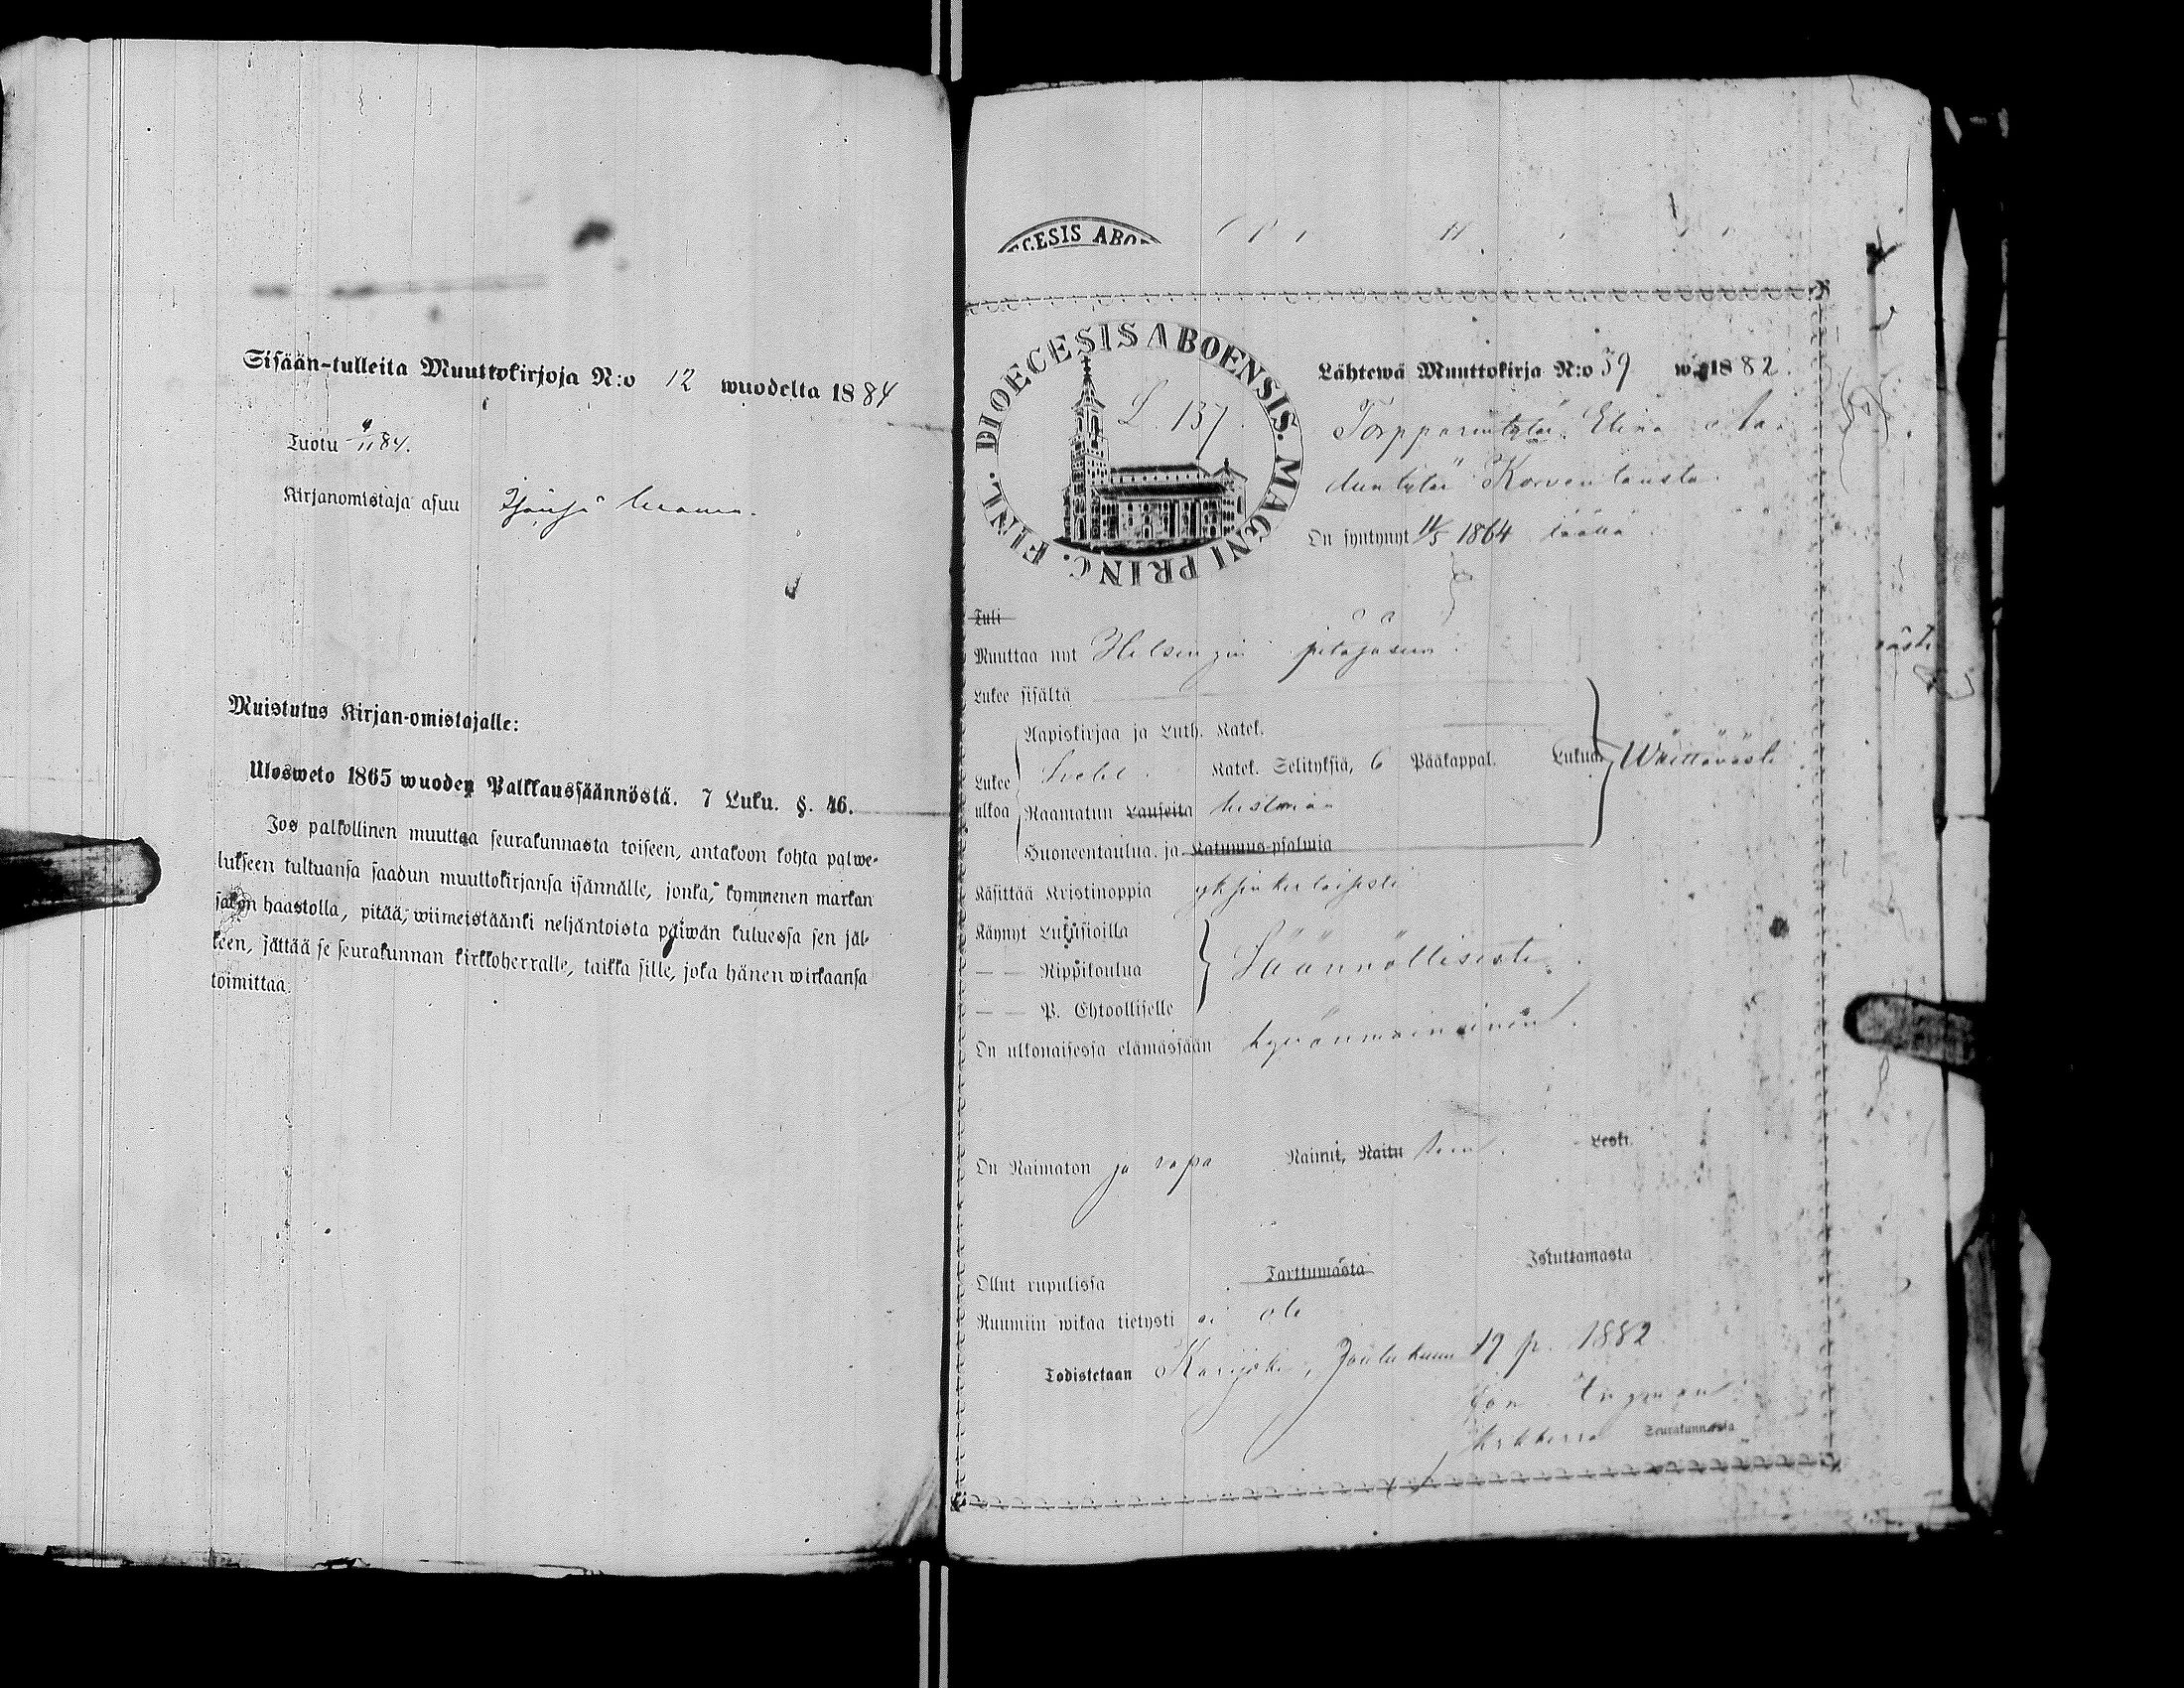 Sisään-tulleita Muuttokirjoja N:o 12 wuodelta 1884
Tuotu 4/11 84.
Kirjanomistaja asuu
Muistutus Kirjan-omistajalle:
Ulosweto 1865 wuoden Palkkaussäännöstä. 7 Luku. §. 46.
Jos palkollinen muuttaa seurakunnasta toiseen, antakoon kohta palwe-
lukseen tultuansa saadun muuttokirjansa isännälle, jonka, kymmenen markan
sakon haastolla, pitää, wiimeistäänki neljäntoista päiwän kuluessa sen jäl-
keen, jättää se seurakunnan kirkkoherralle, taikka sille, joka hänen wirkaansa
toimittaa.
CESIS ABO
DIOECESIS ABOENSIS. MAGNI PRINC. FINL.
L. 137.
Lähtewä Muuttokirja N:o 59 w. 1882.
Torpparintytär Elina
Korventausta
On syntynyt 11/5 1864 täällä
Tuli
Muuttaa nyt Helsingin pitäjäseen
Lukee sisältä
Aapiskirjaa ja Luth. Katek.
Lukee ulkoa Katek. Selityksiä, 6 Pääkappal. Lukua Wälttävästi
Raamatun Lauseita historiaa
Huoneentaulua ja Katumus-psalmia
Käsittää Kristinoppia yksinkertaisesti
Käynyt Lukusioilla
— — Rippikoulua Säännöllisesti
— — P. Ehtoolliselle
On ulkonaisessa elämässään hyvänmaineinen.
On Naimaton ja vapa Naimit, Naitu Leski.
Ollut rupulissa Tarttumasta Istuttamasta
Ruumiin wikaa tietysti ei ole
Todistetaan Karijoki, Joulukuun 19 p. 1882
Ingman
Seurakunnasta